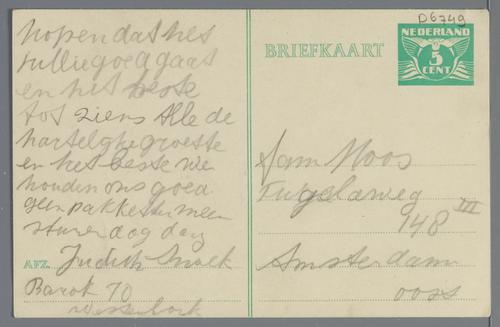 hopen dat het
jullie goed gaat
en het beste
tot ziens Alle de
hartelijke groeste
en het beste We
houden ons goed
geen pakketten meer
sturen dag dag
AFZ. Judith Snoek
Barak 70
Westerbork
BRIEFKAART
D6749
NEDERLAND
5
CENT
Sam Moos
Tugelaweg
148 III
Amsterdam
oost